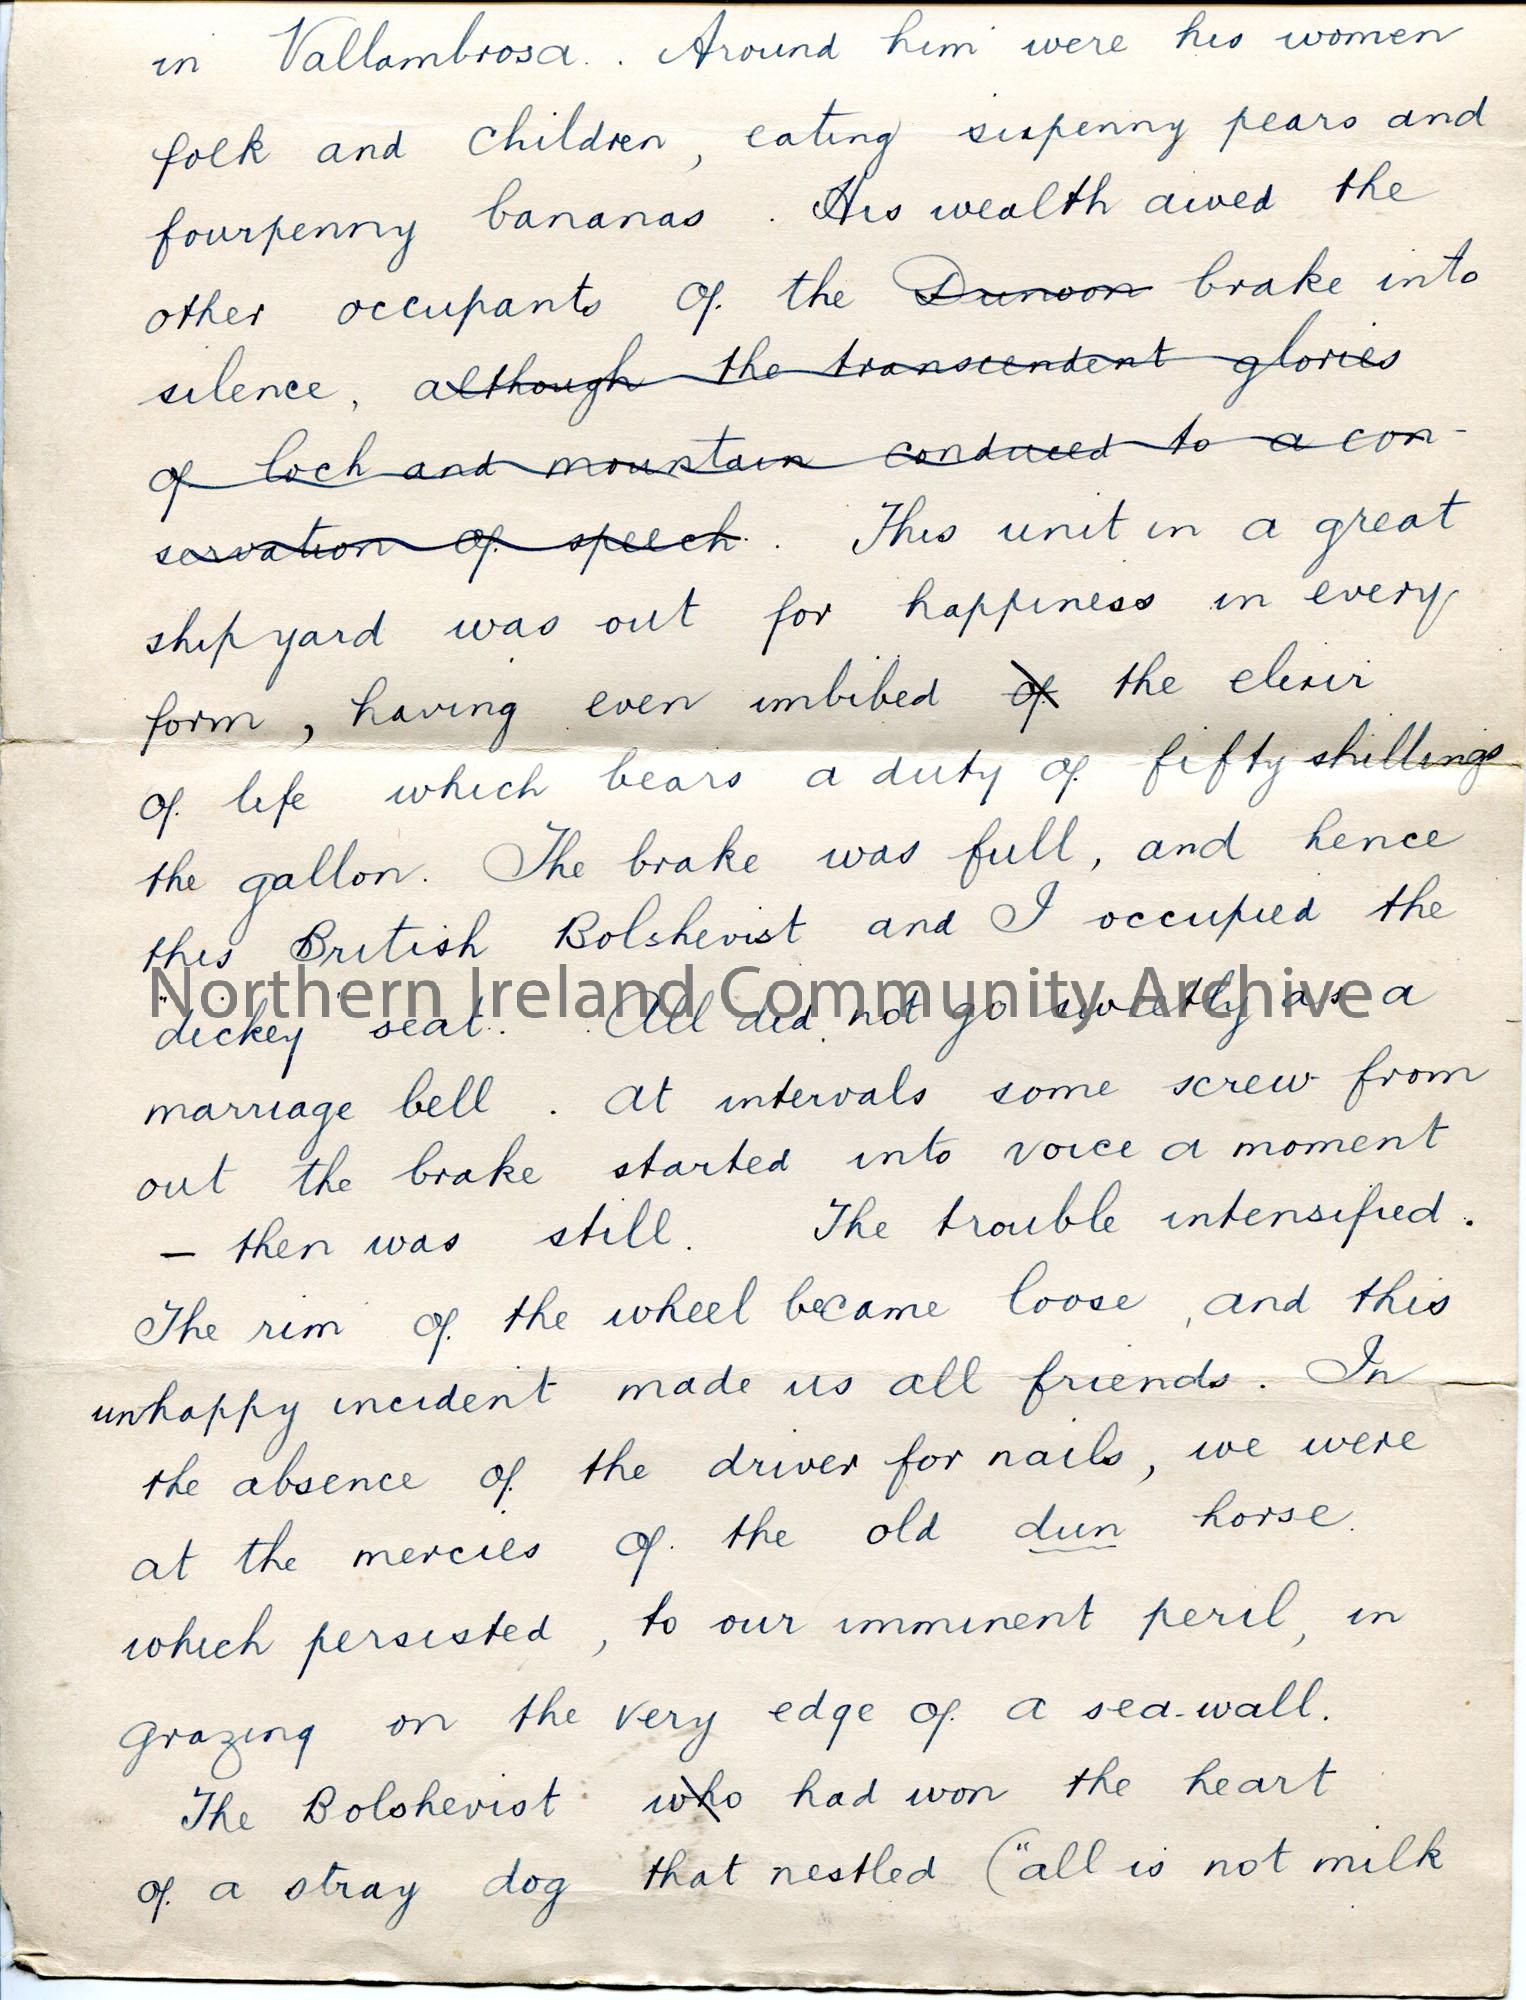 in Vallambrosa. . Around him were his women
folk and children, eating sixpenny pears and
fourpenny bananas. His wealth awed the
other occupants of the Dunoon brake into
silence, although the transcendent glories
of loch and mountain conduced to a con-
servation of speech. This unit in a great
shipyard was out for happiness in every
form, having even imbibed of the elixir
of life which bears a duty of fifty shillings
the gallon. The brake was full, and hence
this British Bolshevist and I occupied the
"dickey" seat. All did not go sweetly as a
Northern Ireland Community Archive
marriage bell. At intervals some screw from
out the brake started into voice a moment
– then was still. The trouble intensified.
The rim of the wheel became loose, and this
unhappy incident made us all friends. In
the absence of the driver for nails, we were
at the mercies of the old dun horse
which persisted, to our imminent peril, in
grazing on the very edge of a sea-wall.
The Bolshevist who had won the heart
of a stray dog that nestled ("all is not milk